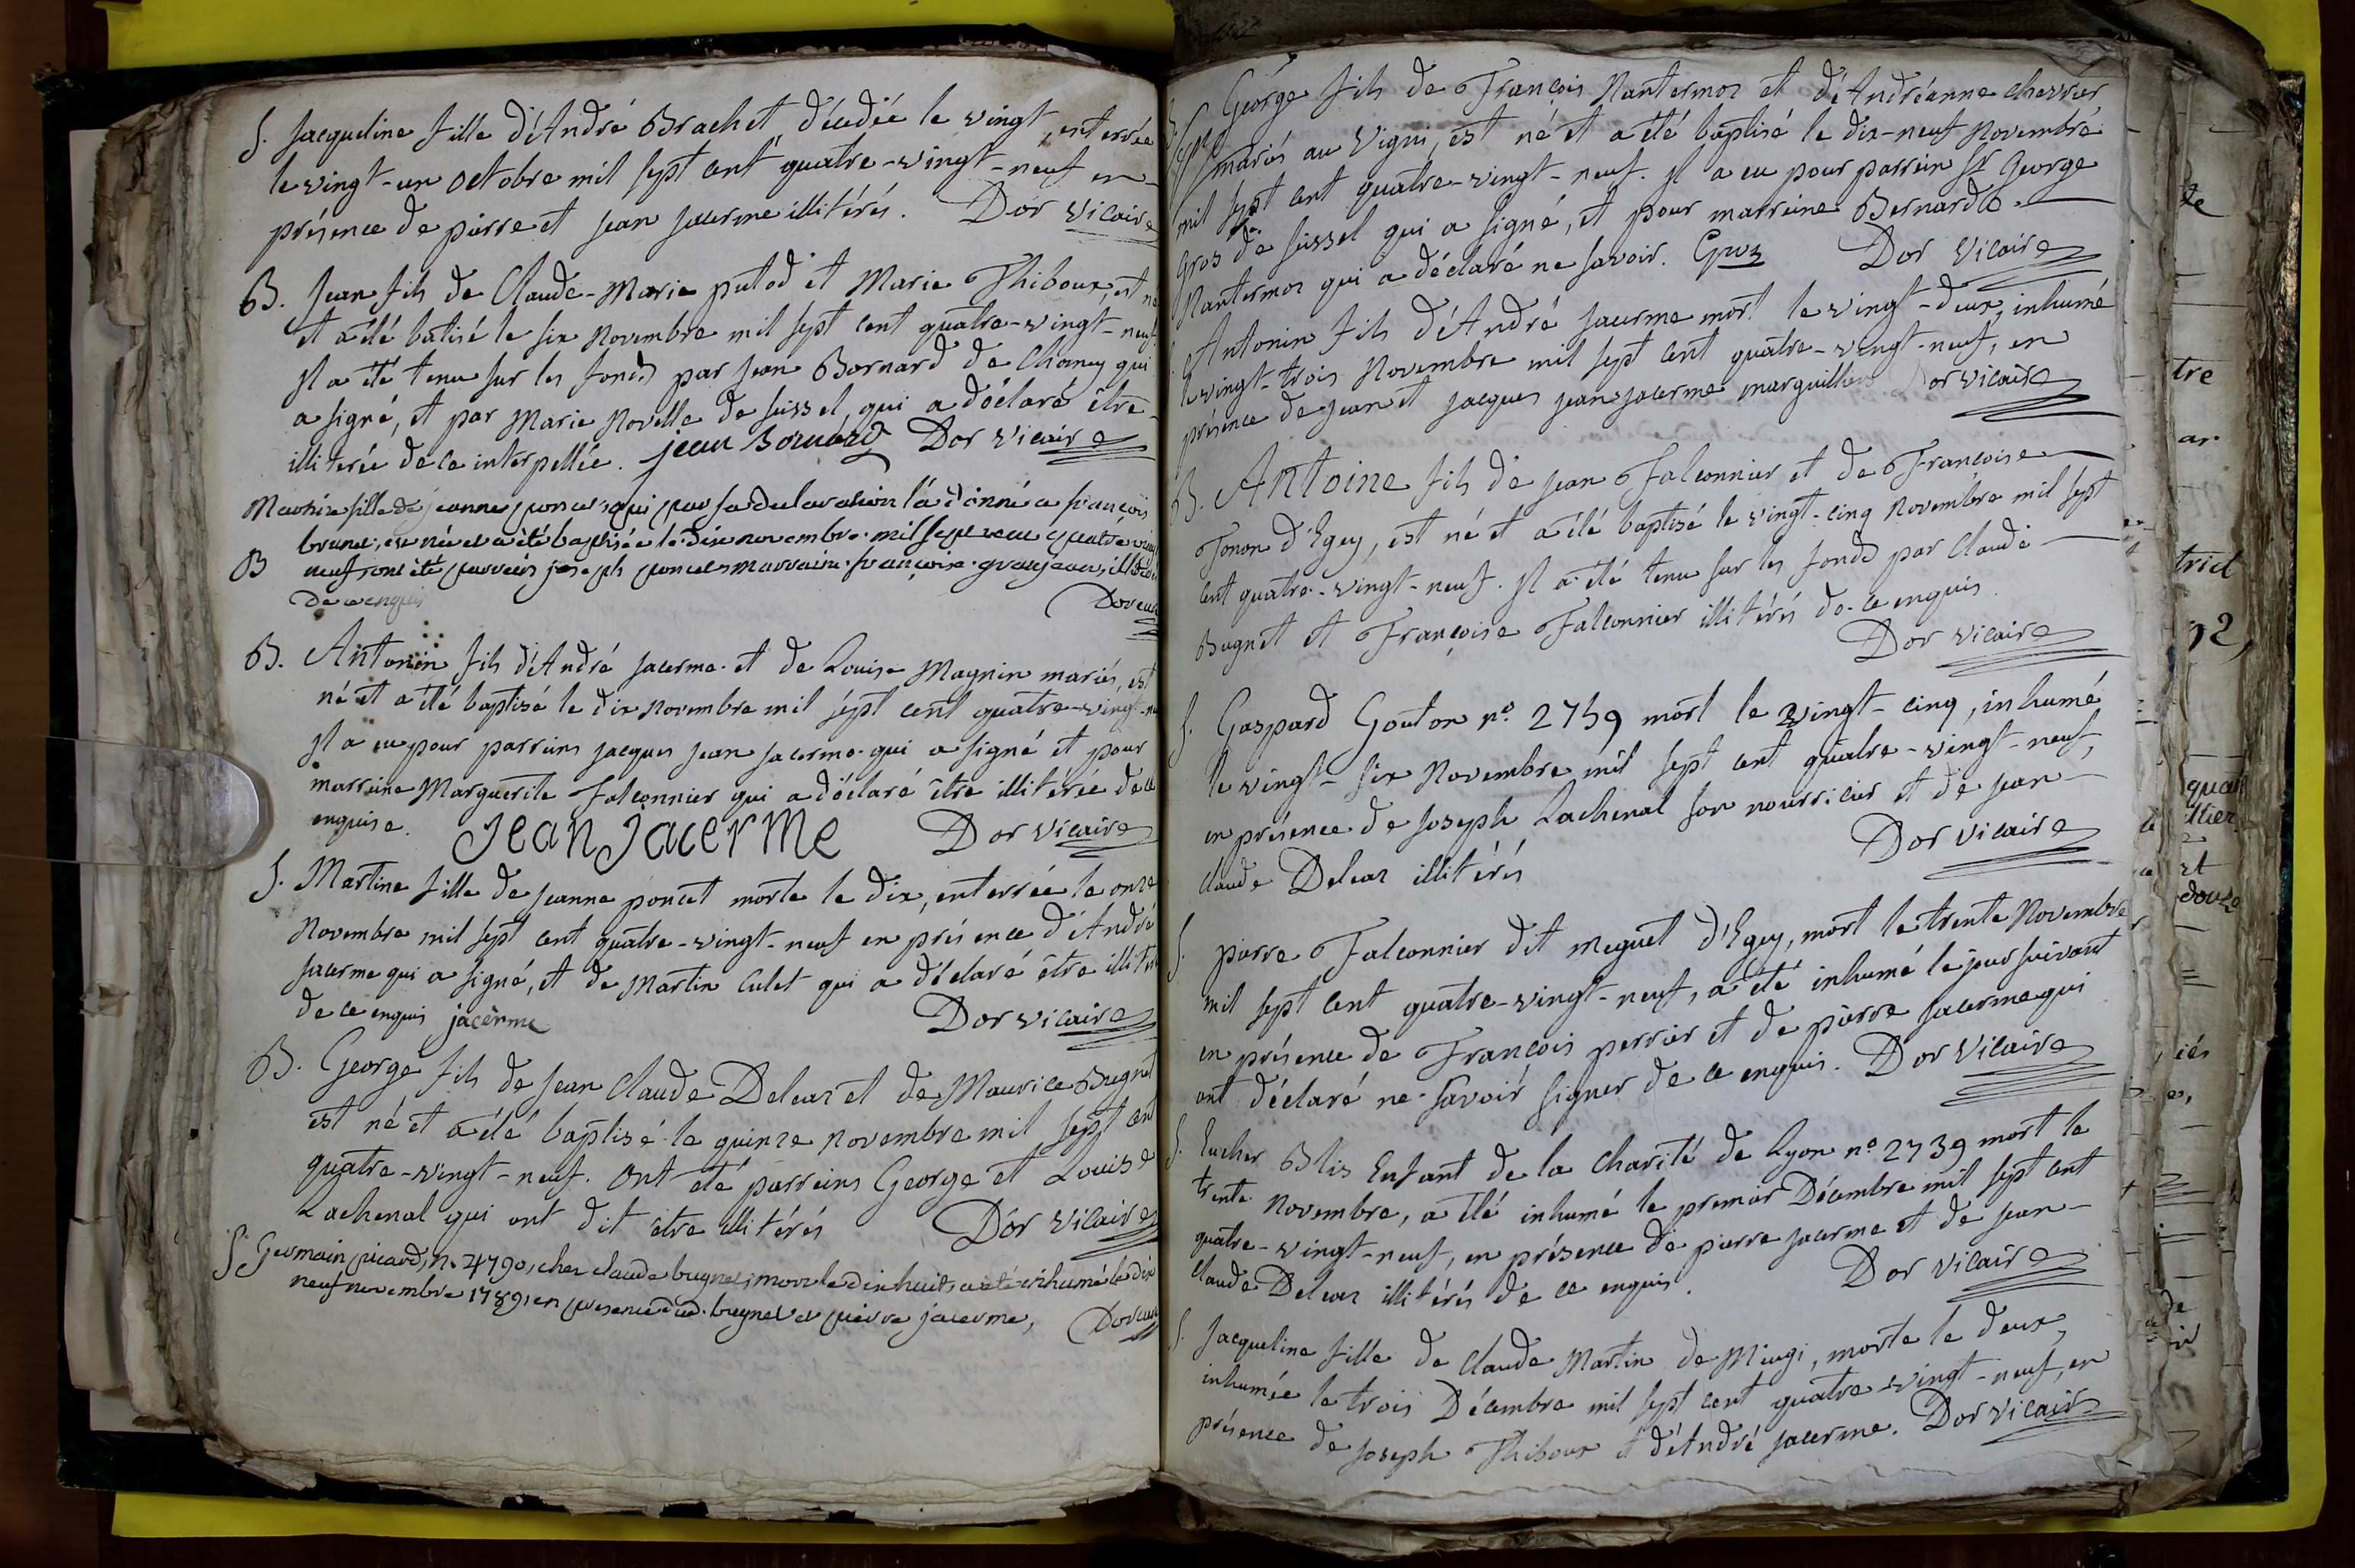 S. Jacqueline fille d'André Brachet, décédée le vingt, enterrée
le vingt-un octobre mil sept cent quatre-vingt-neuf en
présence de pierre et jean jacerme illitérés. Dor vicaire
B. Jean fils de Claude-Marie putod et Marie Thiboux, est né
et a été batisé le six Novembre mil sept cent quatre-vingt-neuf
Il a été tenu sur les fonds par jean Bornard de Chaney qui
a signé, et par Marie Novelle de seissel, qui a déclaré être
illiterée de ce interpellée. jean Bornard Dor vicaire
Martine fille de jeanne poncet, qui par sa declaration l'a donné a françois
brunet, est née et a été baptisée le dix novembre mil sept cent quatre vingt
B neuf, ont été parreins joseph poncet marraine françoise granjean, illiterés
de ce enquis
Dor curé
B. Antonin fils d'André jacerme et de Louise Magnin mariés, est
né et a été baptisé le dix Novembre mil sept cent quatre-vingt-neuf
Il a eu pour parreins jacques jean jacerme qui a signé et pour
marreine Marguerite Falconnier qui a déclaré être illitérée de ce
enquise. Jean jacerme Dor vicaire
S. Martine fille de jeanne poncet morte le dix, enterrée le onze
Novembre mil sept cent quatre-vingt-neuf en présence d'André
jacerme qui a signé, et de Martin Culet qui a déclaré être illitéré
de ce enquis jacerme Dor vicaire
B. George fils de jean Claude Deleaz et de Maurice Bugnet
est né et a été baptisé le quinze novembre mil sept cent
quatre-vingt-neuf. Ont été parreins George et Louise
Lachenal qui ont dit être illitérés Dor vicaire
S. Germain picard, n. 4790, chez claude bugnet, mort le dix huit, a été inhumé le dix
neuf novembre 1789, en presence dud. bugnet et pierre jacerme, Dor curé
George fils de François Nantermoz et d'Andréanne chevrier
mariés au Vigny, est né et a été baptisé le dix-neuf Novembre
mil sept cent quatre-vingt-neuf. Il a eu pour parrein Sr George
Gros de seissel qui a signé, et pour marreine Bernarde
Nantermoz qui a déclaré ne savoir. Groz Dor vicaire
Antonin fils d'André jacerme mort le vingt-deux, inhumé
le vingt-trois Novembre mil sept cent quatre-vingt-neuf, en
présence de jean et jacques jean jacerme marguilliers Dor vicaire
B. Antoine fils de jean Falconnier et de Françoise
Tonon d'Egey, est né et a été baptisé le vingt-cinq Novembre mil sept
cent quatre-vingt-neuf. Il a été tenu sur les fonds par Claude
Bugnet et Françoise Falconnier illitérés de ce enquis.
Dor vicaire
S. Gaspard Gouton no. 2759 mort le vingt-cinq, inhumé
le vingt-six Novembre mil sept cent quatre-vingt-neuf,
en présence de joseph Lachenal son nourricier et de jean
claude Deleaz illitérés Dor vicaire
S. pierre Falconnier dit meguet d'Egey, mort le trente Novembre
mil sept cent quatre-vingt-neuf, a été inhumé le jour suivant
en présence de François perrier et de pierre jacerme qui
ont déclaré ne savoir signer de ce enquis. Dor vicaire
S. Eucher Blis Enfant de la Charité de Lyon no 2739 mort le
trente Novembre, a été inhumé le premier Décembre mil sept cent
quatre-vingt-neuf, en présence de pierre jacerme et de jean
claude Deleaz illitérés de ce enquis. Dor vicaire
S. Jacqueline fille de claude Martin de Miugi, morte le deux,
inhumée le trois Décembre mil sept cent quatre vingt-neuf, en
présence de joseph Thiboux et d'André jacerme. Dor vicaire